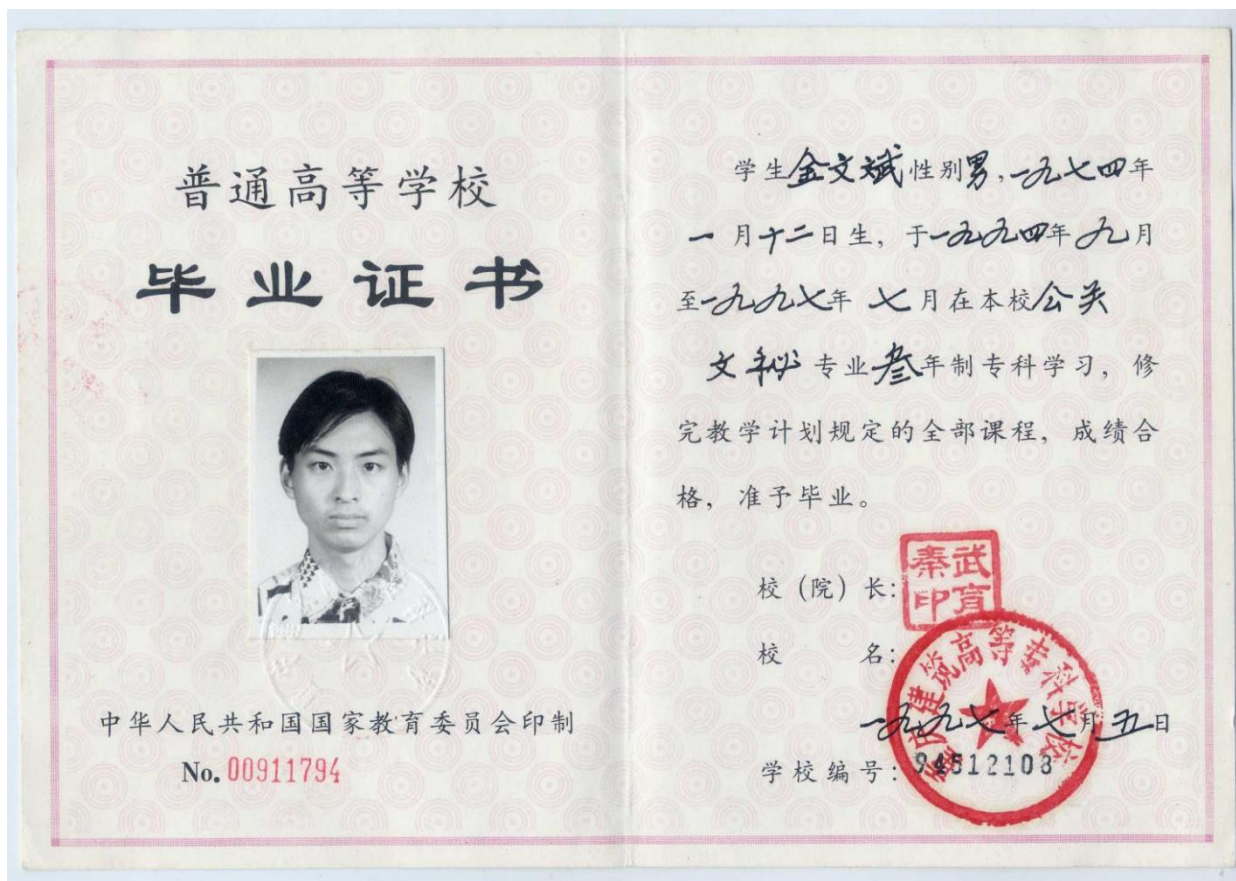 普通高等学校
毕业证书
中华人民共和国国家教育委员会印制
No. 00911794
学生金文斌性别男,一九七四年
一月十二日生, 于一九九四年九月
至一九九七年七月在本校公关
文秘专业叁年制专科学习, 修
完教学计划规定的全部课程, 成绩合
格, 准予毕业。
校(院)长:
武育秦印
校名:
建筑高等专科学校
一九九七年七月五日
学校编号: 94512108